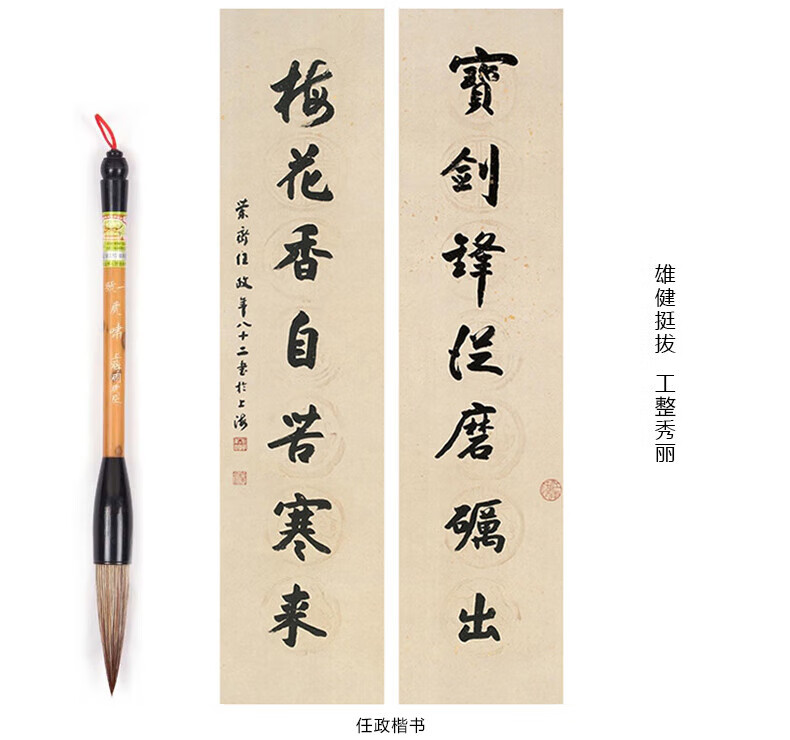 雄健挺拔 工整秀丽
寶劍鋒從磨礪出
梅花香自苦寒来
任政年八十二書於上海
任政楷书